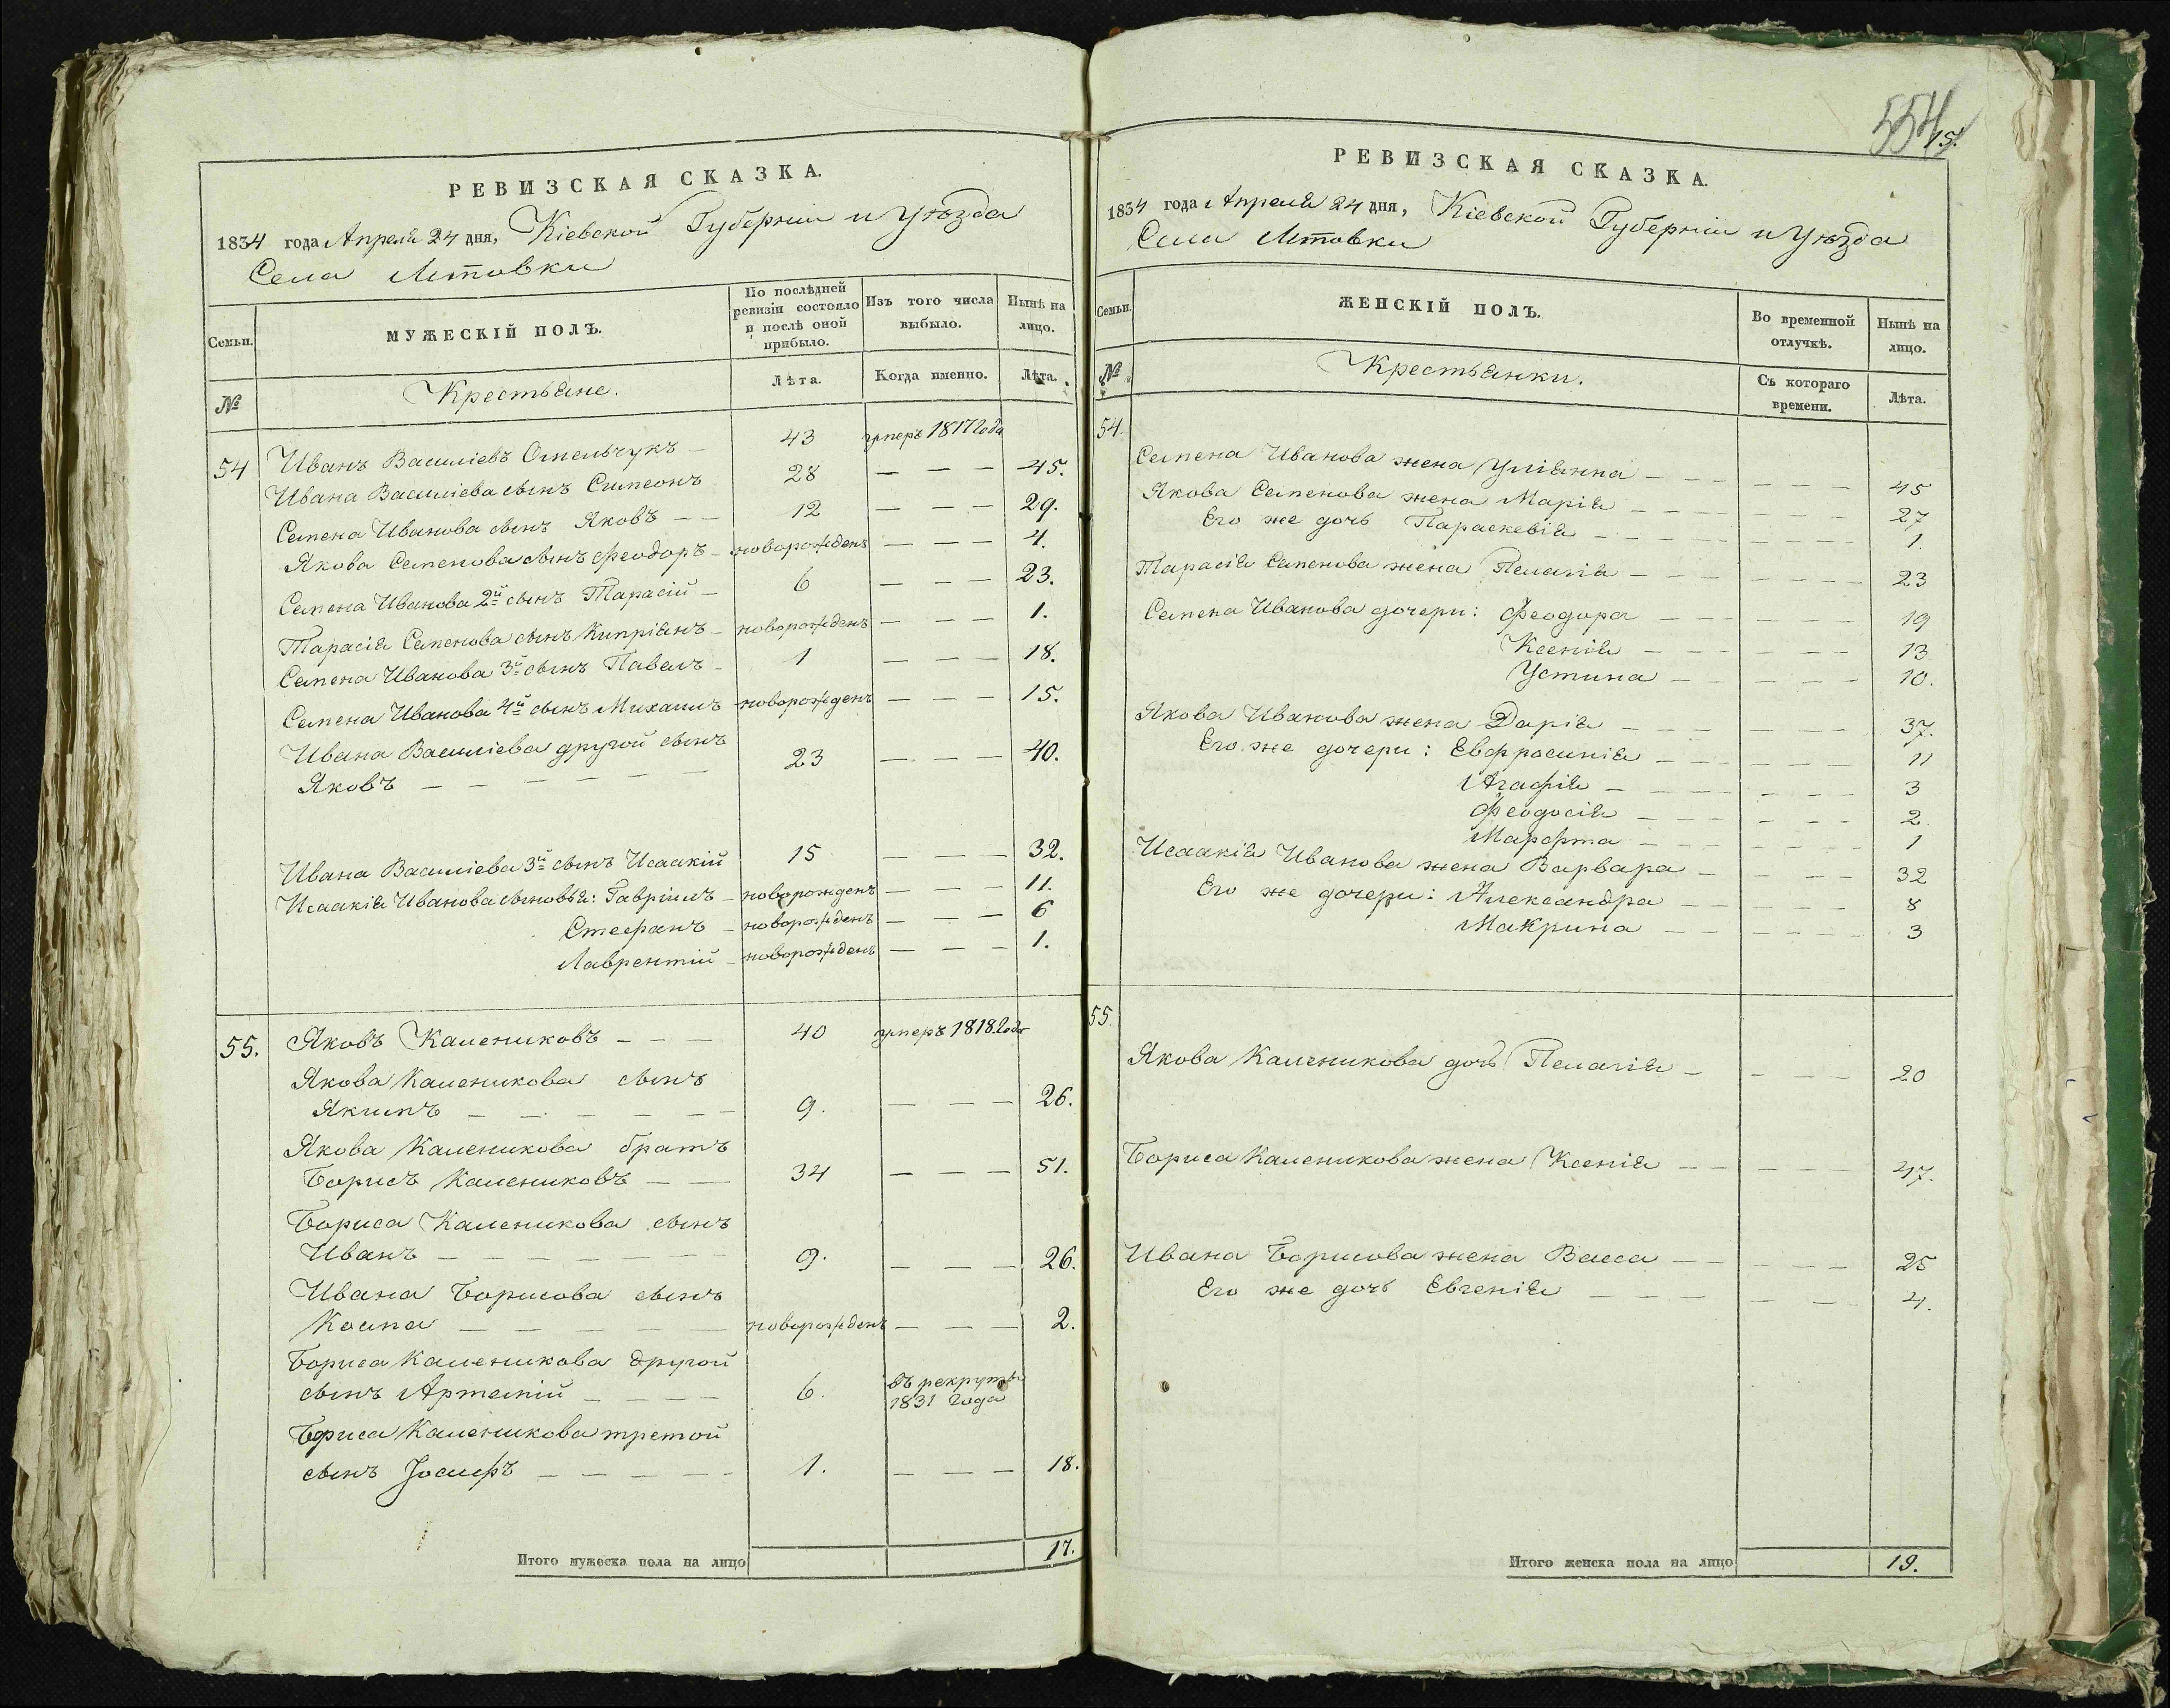 РЕВИЗСКАЯ СКАЗКА.
1834 года Апреля 24 дня, Кіевской Губерніи и Уѣзда
Села Литовки
Семьи.
МУЖЕСКІЙ ПОЛЪ.
По послѣдней ревизіи состояло и послѣ оной прибыло.
Изъ того числа выбыло.
Нынѣ на лицо.
№
Крестьяне.
Лѣта.
Когда именно.
Лѣта.
54 Иванъ Василіевъ Омельчукъ — 43 умеръ 1817 года
Ивана Василіева сынъ Симеонъ 28 — — — 45.
Семена Иванова сынъ Яковъ — — 12 — — — 29.
Якова Семенова сынъ Феодоръ — новорожденъ — — — 4.
Семена Иванова 2й сынъ Тарасій — 6 — — — 23.
Тарасія Семенова сынъ Кипріянъ — новорожденъ — — — 1.
Семена Иванова 3й сынъ Павелъ — 1 — — — 18.
Семена Иванова 4й сынъ Михаилъ новорожденъ — — — 15.
Ивана Василіева другой сынъ
Яковъ — — — — — — 23 — — — 40.
Ивана Василіева 3й сынъ Исаакій 15 — — — 32.
Исаакія Иванова сыновья: Гавріилъ — новорожденъ — — — 11.
Стефанъ — новорожденъ — — — 6
Лаврентій — новорожденъ — — — 1.
55. Яковъ Калениковъ — — — 40 умеръ 1818 года
Якова Каленикова сынъ
Якимъ — — — — — — 9. — — — 26.
Якова Каленикова братъ
Борисъ Калениковъ — — 34 — — — 51.
Бориса Каленикова сынъ
Иванъ — — — — — — 9. — — — 26.
Ивана Борисова сынъ
Косма — — — — — новорожденъ — — — 2.
Бориса Каленикова другой
сынъ Артемій — — — — 6. въ рекруты
1831 года
Бориса Каленикова третой
сынъ Іосифъ — — — — — 1. — — — 18.
Итого мужеска пола на лицо 17.
554
15.
РЕВИЗСКАЯ СКАЗКА.
1834 года Апреля 24 дня, Кіевской Губерніи и Уѣзда
Села Литовки
Семьи.
ЖЕНСКІЙ ПОЛЪ.
Во временной отлучкѣ.
Нынѣ на лицо.
№
Крестьянки.
Съ котораго времени.
Лѣта.
54.
Семена Иванова жена Уліянна — — — — — — 45
Якова Семенова жена Марія — — — — — — 27
Его же дочь Параскевія — — — — — — 1.
Тарасія Семенова жена Пелагія — — — — — — 23
Семена Иванова дочери: Феодора — — — — — — 19
Ксенія — — — — — — 13
Устина — — — — — — 10.
Якова Иванова жена Дарія — — — — — — 37.
Его же дочери: Евфросинія — — — — — — 11
Агафія — — — — — — 3
Феодосія — — — — — — 2
Марфта — — — — — — 1
Исаакія Иванова жена Варвара — — — — 32
Его же дочери: Александра — — — — — 8
Макрина — — — — — 3
55.
Якова Каленикова дочь Пелагія — — — — 20
Бориса Каленикова жена Ксенія — — — — — 47.
Ивана Борисова жена Васса — — — — — 25
Его же дочь Евгенія — — — — — 4.
Итого женска пола на лицо 19.